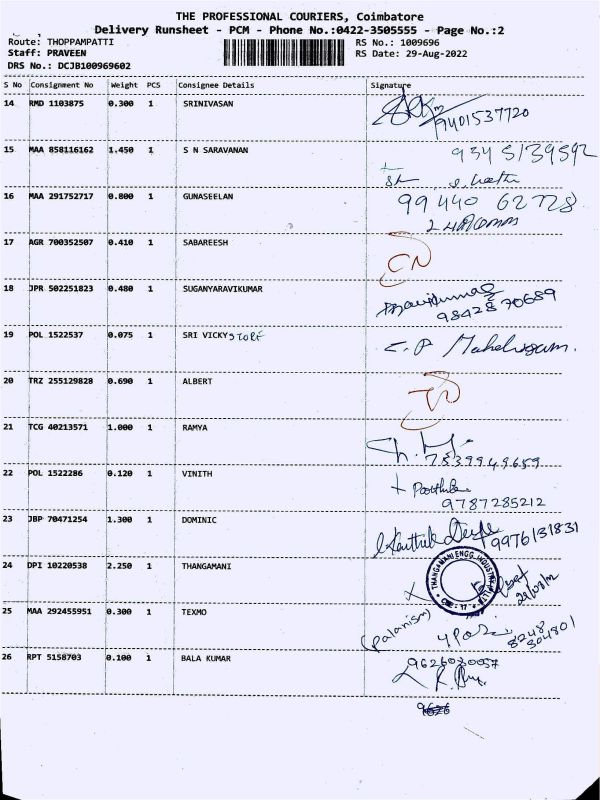 THE PROFESSIONAL COURIERS, Coimbatore
Delivery Runsheet - PCM - Phone No.:0422-3505555 - Page No.:2
Route: THOPPAMPATTI
RS No.: 1009696
Staff: PRAVEEN
RS Date: 29-Aug-2022
DRS No.: DCJB100969602
S No Consignment No Weight PCS Consignee Details Signature
14 RMD 1103875 0.300 1 SRINIVASAN
9401537720
15 MAA 858116162 1.450 1 S N SARAVANAN
9345139592
16 MAA 291752717 0.800 1 GUNASEELAN
99440 62728
17 AGR 700352507 0.410 1 SABAREESH
CN
18 JPR 502251823 0.480 1 SUGANYARAVIKUMAR
98428 70689
19 POL 1522537 0.075 1 SRI VICKY STORE
20 TRZ 255129828 0.690 1 ALBERT
21 TCG 40213571 1.000 1 RAMYA
7839949659
22 POL 1522286 0.120 1 VINITH
9787285212
23 JBP 70471254 1.300 1 DOMINIC
Karthik
9976131831
24 DPI 10220538 2.250 1 THANGAMANI
THANGAMANI ENGG. INDUSTRIES
25 MAA 292455951 0.300 1 TEXMO
(Palanism)
8248
304801
26 RPT 5158703 0.100 1 BALA KUMAR
9626030057
9626